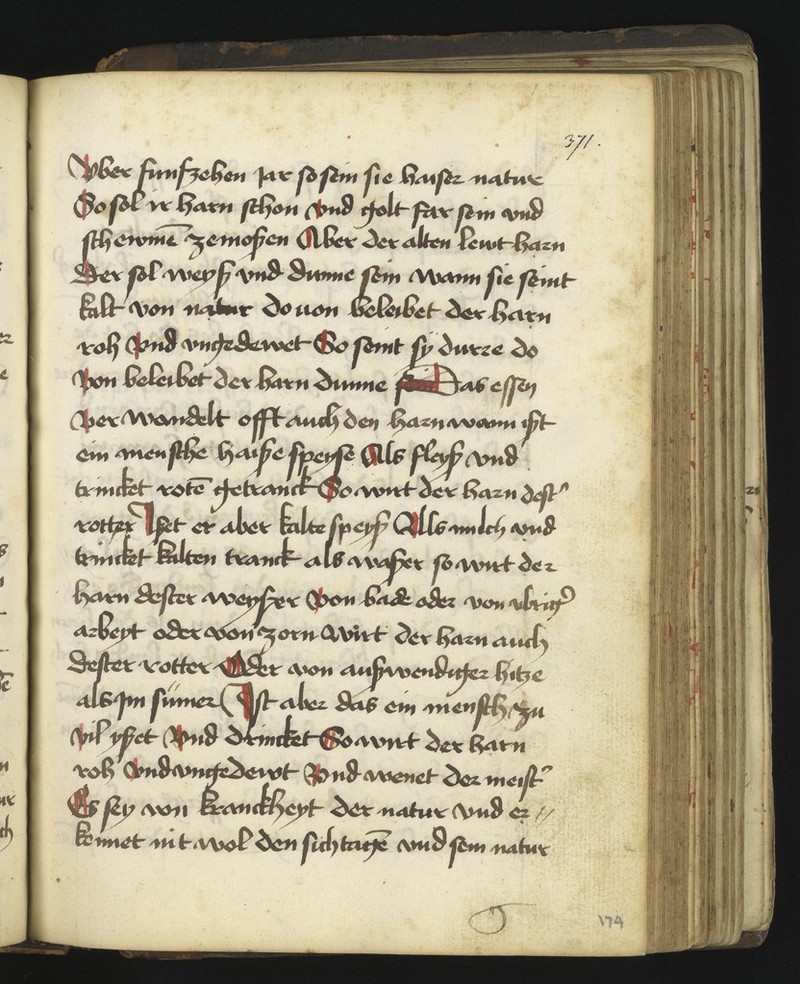 371.
Vber funfzehen Jar so sein sie haiser natur
So sol ir harn schon vnd golt far sein vnd
schewmē zemoßen Aber der alten lewt harn
Der sol weyß vnd dunne sein wann sie seint
kalt von natur do uon beleibet der harn
roh Vnd vngedewet So seint sy durre do
Von beleibet der harn dunne Das essen
Ver wandelt offt auch den harn wann ißt
ein mensche haiße speyse Als fleyß vnd
trincket rotē getranck So wirt der harn dest'
rotter Jset er aber kalte speyß Als milch vnd
trincket kalten tranck als waßer so wirt der
harn dester weyßer Von bade oder von vbrig'
arbeyt oder von zorn wirt der harn auch
dester rotter Oder von außwendiger hitze
als Jm sumer Ist aber das ein mensch zu
vil yßet Vnd drincket So wirt der harn
roh Vnd vngedewt Vnd wenet der meist'
Es sey von kranckheyt der natur vnd er //
kennet nit wol den sichtagē vnd sein natur
174